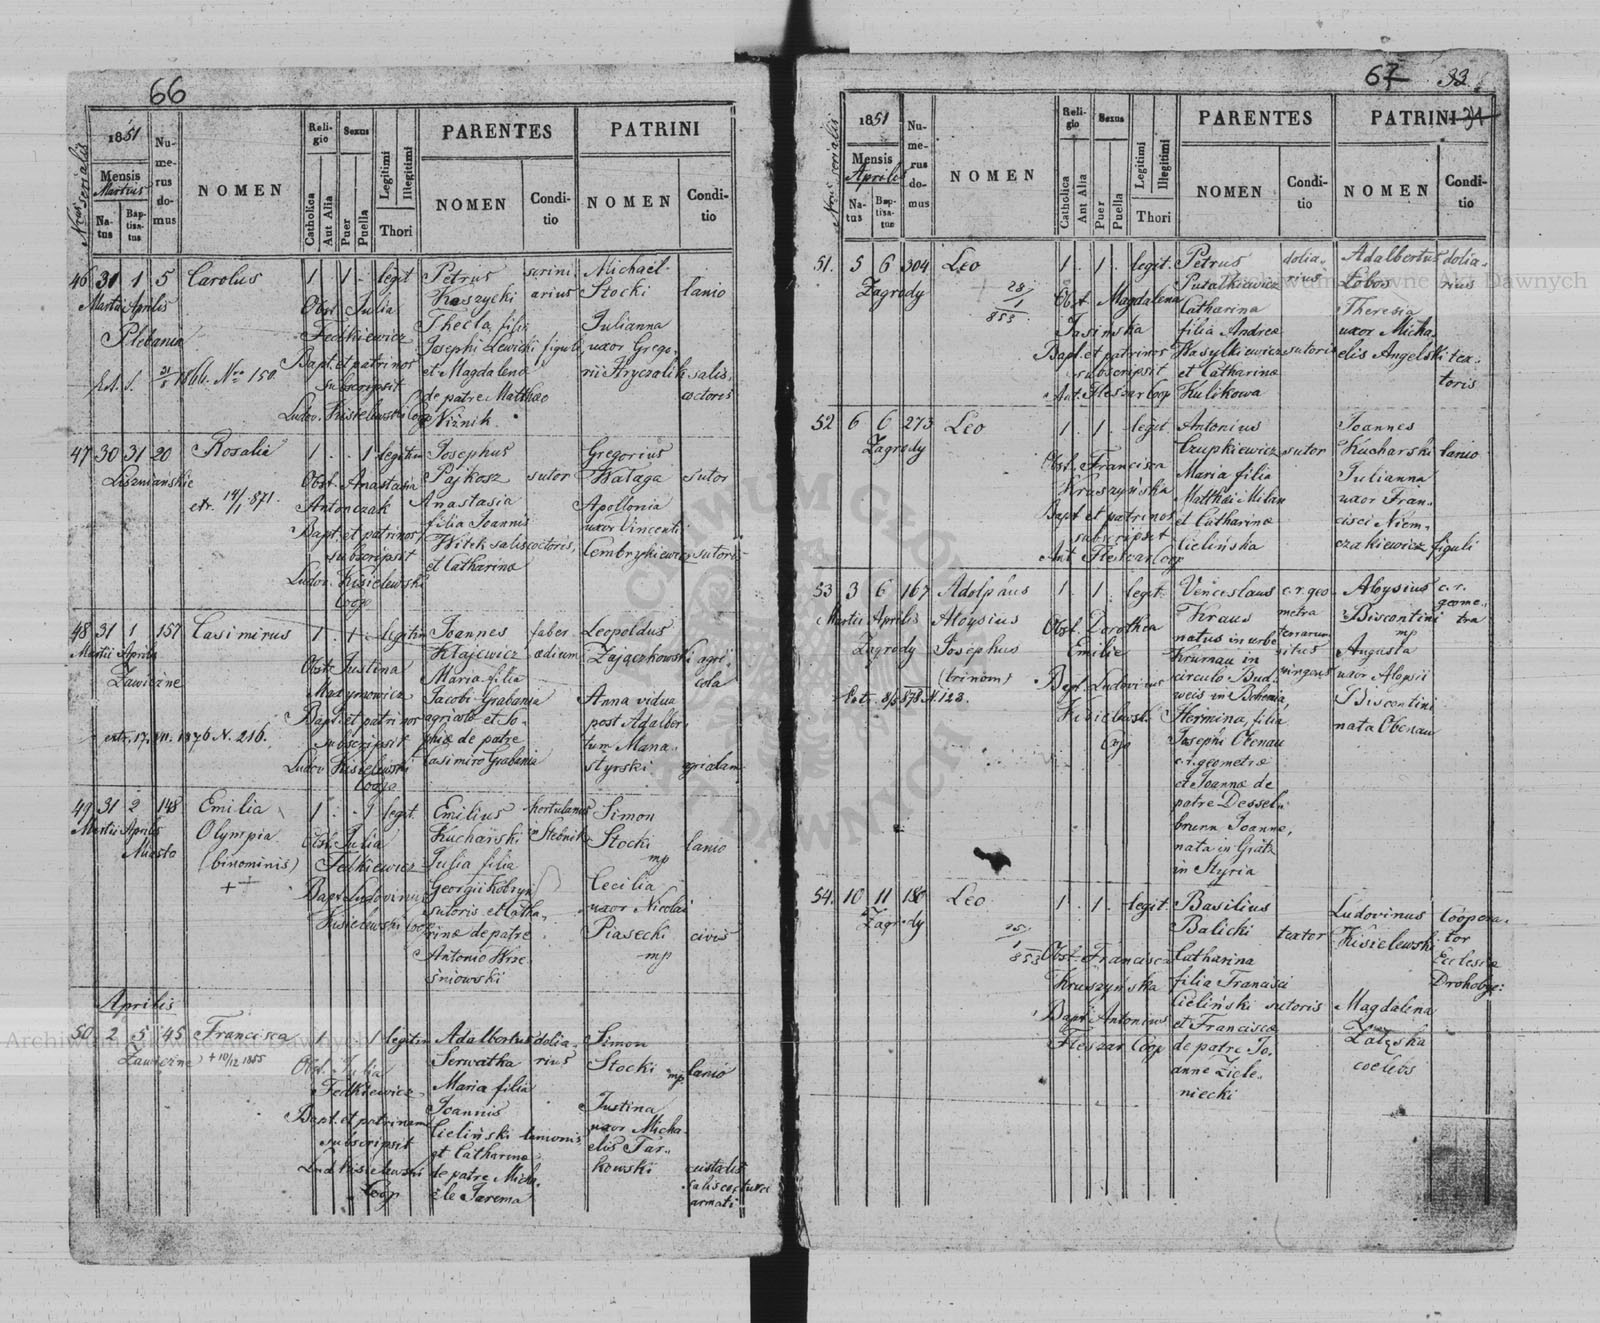 66
Nrus serialis
1851
Mensis
Martius
Natus
Baptisatus
Numerus domus
NOMEN
Religio
Catholica
Aut Alia
Sexus
Puer
Puella
Legitimi
Illegitimi
Thori
PARENTES
NOMEN
Conditio
PATRINI
NOMEN
Conditio
46 31 1 5 Carolus 1 . 1 . legit
Martii Aprilis
Plebania
1866. Nro 150.
Obst. Julia
Fedkiewicz
Bapt. et patrinos
subscripsit
Ludov. Kisielewski Coop
Petrus scrini
Koszycki arius
Thecla, filia
Josephi Lewicki figuli
et Magdalenae
de patre Matthaeo
Niżnik.
Michael
Stocki lanio
Julianna
uxor Grego
rii Hryczolik salis
coctoris
47 30 31 20 Rosalia 1 . . 1 legitim
Liszniańskie
extr. 14/1 871.
Obst. Anastasia
Antończak
Bapt. et patrinos
subscripsit
Ludov. Kisielewski
Coop
Josephus
Pajkosz sutor
Anastasia
filia Joannis
Witek saliscoctoris,
et Catharinae
Gregorius
Wataga sutor
Apollonia
uxor Vincenti
Cembrykiewicz sutoris
48 31 1 157 Casimirus 1 . 1 . legitim
Martii Aprilis
Zawieżne
extr. 17. VII. 1876 N. 216.
Obst. Justina
Martynowicz
Bapt. et patrinos
subscripsit
Ludov. Kisielewski
Coop
Joannes faber
Kłajewicz aedium
Maria filia
Jacobi Grabania
agricolae et So
phiae de patre
Casimiro Grabania
Leopoldus
Zajączkowski agri
cola
Anna vidua
post Adalber
tum Mana
styrski agricolam
49 31 2 148 Emilia 1 . . 1 legit.
Martii Aprilis Olympia
Miasto (binominis)
++
Obst. Julia
Fedkiewicz
Bapt. Ludovicus
Kisielewski Coop
Emilius hortulanus
Kucharski in Stebnik
Julia filia
Georgii Kobryn
sutoris et Catha
rinae de patre
Antonio Wrze
śniowski
Simon
Stocki lanio
mp
Cecilia
uxor Nicolai
Piasecki civis
mp
Aprilis
50 2 5 45 Francisca 1 . . 1 legitim
Zawieżne + 10/12 1855
Obst. Julia
Fedkiewicz
Bapt. et patrinam
subscripsit
Lud Kisielewski
Coop
Adalbertus dolia
Serwatka rius
Maria filia
Joannis
Cieliński lanionis
et Catharinae
de patre Micha
ele Jarema
Simon
Stocki mp lanio
Justina
uxor Micha
elis Tar
kowski custodis
salis cocturae
armati
67 33
34
Nrus serialis
1851
Mensis
Aprilis
Natus
Baptisatus
Numerus domus
NOMEN
Religio
Catholica
Aut Alia
Sexus
Puer
Puella
Legitimi
Illegitimi
Thori
PARENTES
NOMEN
Conditio
PATRINI
NOMEN
Conditio
51. 5 6 304 Leo 1 . 1 . legit.
Zagrody
28/1 853
Obst. Magdalena
Jasinska
Bapt. et patrinos
subscripsit
Ant. Fleszar Coop
Petrus dolia
Putalkiewicz rius
Catharina
filia Andreae
Wasylkiewicz sutoris
et Catharinae
Kulikowa
Adalbertus dolia
Łobos rius
Theresia
uxor Micha
elis Angelski tex
toris
52 6 6 273 Leo 1 . 1 . legit
Zagrody
Obst. Francisca
Kruszyńska
Bapt. et patrinos
subscripsit
Ant Fleszar Coop
Antonius
Czupkiewicz sutor
Maria filia
Matthaei Milan
et Catharinae
Cielińska
Joannes
Kucharski lanio
Julianna
uxor Fran
cisci Niem
czakiewicz figuli
53 3 6 167 Adolphus 1 . 1 . legit.
Martii Aprilis Aloysius
Zagrody Josephus
(trinom)
Extr. 8/5 878 N. 123.
Obst. Dorothea
Emilie
Bapt. Ludovicus
Kisielewski
Coop
Venceslaus c.r. geo
Kraus metra
natus in urbe
Krumau in
circulo Bud
weis in Bohemia,
Hermina, filia
Josephi Obenau
c.r. geometrae
et Joannae de
patre Dessel
brunn Joanne,
nata in Grätz
in Styria
Aloysius c.r.
Biscontini geome
mp tra
Augusta
uxor Aloysii
Biscontini
nata Obenau
54. 10 11 180 Leo 1 . 1 . legit.
Zagrody
25/1 853
Obst. Francisca
Kruszyńska
Bapt. Antonius
Fleszar Coop
Basilius
Balicki textor
Catharina
filia Francisci
Cieliński sutoris
et Franciscae
de patre Jo
anne Ziele
niecki
Ludovicus Coopera
Kisielewski tor
Ecclesiae
Drohobyc:
Magdalena
Załęska
coelebs
Archiwum Główne Akt Dawnych
Archiwum Główne Akt Dawnych
ARCHIWUM GŁÓWNE AKT DAWNYCH